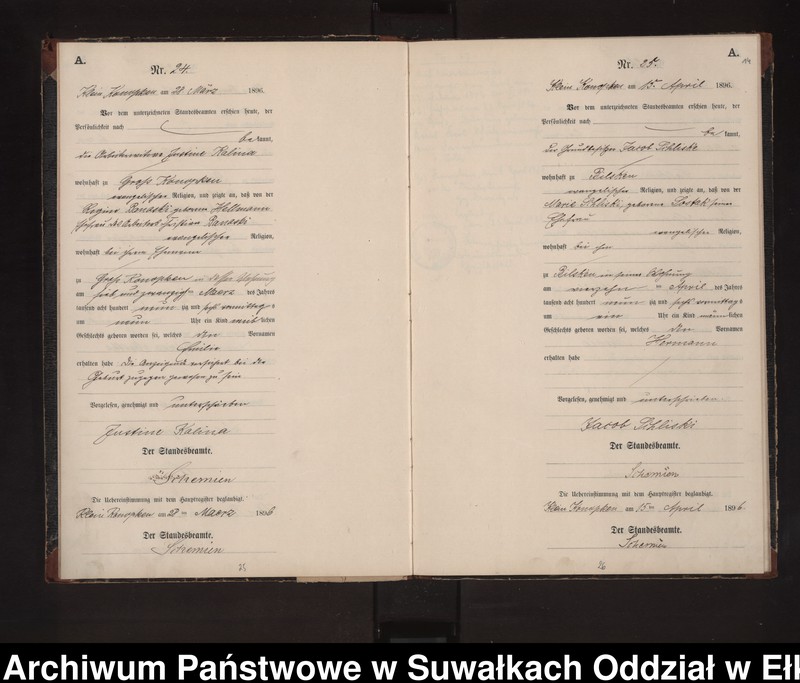 A.
Nr. 24.
Klein Konopken am 28 März 1896.
Vor dem unterzeichneten Standesbeamten erschien heute, der
Persönlichkeit nach
be kannt,
die Arbeiterwitwe Justine Kalina
wohnhaft zu Groß Konopken
evangelischer Religion, und zeigte an, daß von der
geborenen Hellmann
Ehefrau des Arbeiters Christian
evangelischer Religion,
wohnhaft bei ihrem Ehemann
zu Groß Konopken in dessen Wohnung
am sieben und zwanzigsten Maerz des Jahres
tausend acht hundert neun zig und sechs vormittags
um neun Uhr ein Kind weiblichen
Geschlechts geboren worden sei, welches den Vornamen
Emilie
erhalten habe Die Anzeigende versichert bei der
Geburt zugegen gewesen zu sein
Vorgelesen, genehmigt und unterschrieben
Justine Kalina
Der Standesbeamte.
Schemien
Die Uebereinstimmung mit dem Hauptregister beglaubigt.
Klein Konopken am 28ten Maerz 1896
Der Standesbeamte.
Schemien
A.
Nr. 25.
Klein Konopken am 15. April 1896.
Vor dem unterzeichneten Standesbeamten erschien heute, der
Persönlichkeit nach
be kannt,
der Grundbesitzer Jacob Schliski
wohnhaft zu Pilsken
evangelischer Religion, und zeigte an, daß von der
Marie Schliski, geborene seiner
Ehefrau
evangelischer Religion,
wohnhaft bei ihm
zu Pilsken in seiner Wohnung
am vierzehnten April des Jahres
tausend acht hundert neun zig und sechs vormittags
um ein Uhr ein Kind männlichen
Geschlechts geboren worden sei, welches den Vornamen
Hermann
erhalten habe
Vorgelesen, genehmigt und unterschrieben
Jacob Schliski
Der Standesbeamte.
Schemien
Die Uebereinstimmung mit dem Hauptregister beglaubigt.
Klein Konopken am 15ten April 1896
Der Standesbeamte.
Schemien
Archiwum Państwowe w Suwałkach Oddział w Ełk